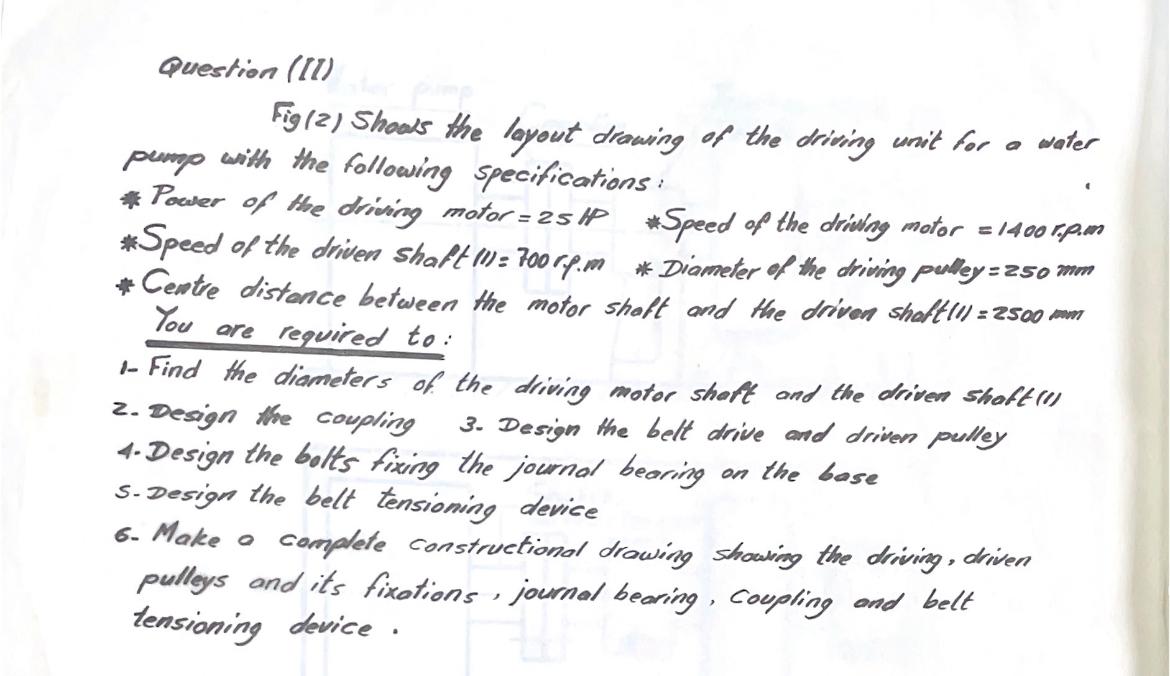 Question (II)
Fig(2) Shows the layout drawing of the driving unit for a water
pump with the following specifications:
* Power of the driving motor = 25 HP * Speed of the driving motor = 1400 r.p.m
* Speed of the driven shaft (1) = 700 r.p.m * Diameter of the driving pulley = 250 mm
* Centre distance between the motor shaft and the driven shaft (1) = 2500 mm
You are required to:
1- Find the diameters of the driving motor shaft and the driven shaft (1)
2. Design the coupling 3- Design the belt drive and driven pulley
4. Design the bolts fixing the journal bearing on the base
5- Design the belt tensioning device
6- Make a complete constructional drawing showing the driving, driven
pulleys and its fixations, journal bearing, Coupling and belt
tensioning device.